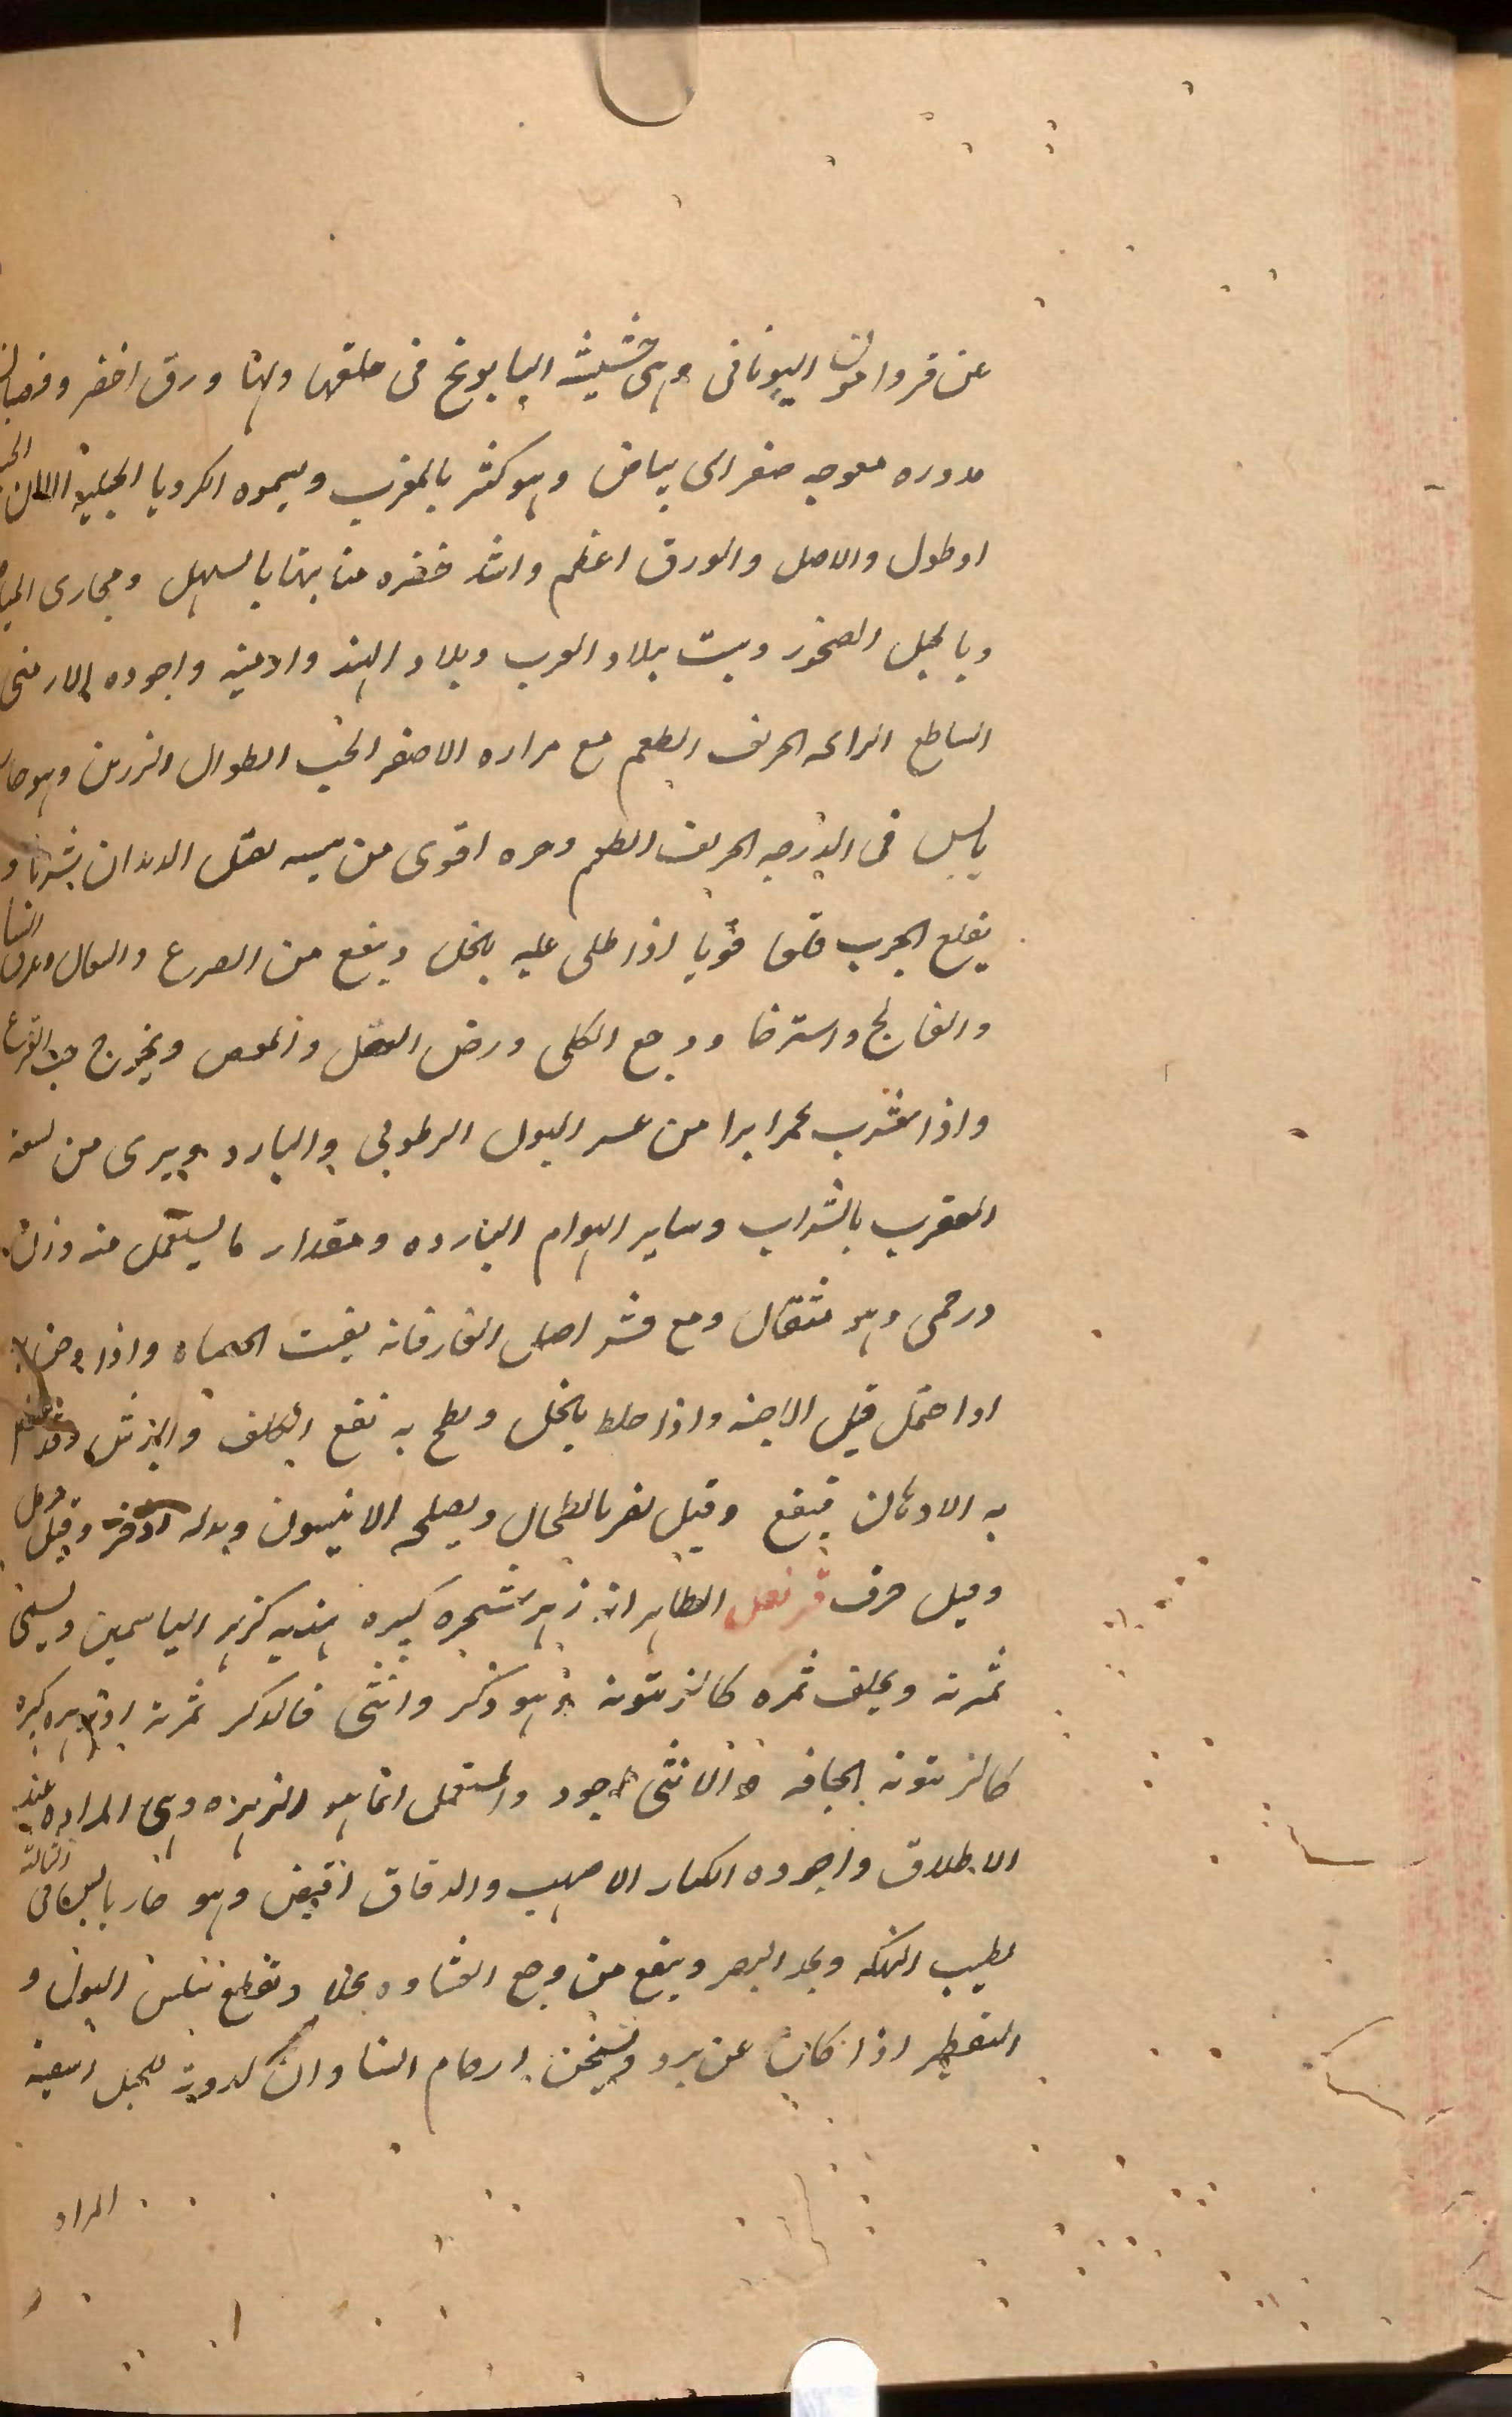 عن قروامون اليونانى وهى حشيشة البابونج فى خلقها ولها ورق اخضر وقضبان
مدوره معوجه صغر الى بياض وهو كثير بالمغرب ويسموه الكرويا الجبلية
اوطول والاصل والورق اعظم واشد خضره منابتها بالسهل ومجارى المياه
وبالجبل الصخور وينبت ببلاد العرب وبلاد الهند وارمينه واجوده الارمنى
الساطع الرائحه الحريف الطعم مع مراره الاصفر الخشب الطوال الرزين وهو حار
يابس فى الدرجه الحريف الطعم وحره اقوى من يبسه يقتل الديدان شربا و
يقلع الجرب قلعا قويا اذا طلى عليه بالخل وينفع من الصرع والسعال وعرق النسا
والفالج واسترخا ووجع الكلى ورض العضل والمغص ويخرج حب القرع
واذا شرب بخمر ابرا من عسر البول الرطوبى والبارد ويبرى من لسعة
العقرب بالشراب وساير الهوام البارده ومقدار ما يستعمل منه وزن
درخمى وهو مثقال ومع قشر اصل الغار فانه يفتت الحصاه واذا دخن
او احتمل قتل الاجنه واذا خلط بالخل ولطخ به نفع الكلف والبرش وقد
به الادهان فينفع وقيل يضر بالطحال ويصلحه الانيسون وبدله اذخر وقيل
وقيل حرف قرنفل الظاهر انه زهر شجره كبيره هنديه كزهر الياسمين ويسمى
ثمرته ويخلف ثمره كالزيتونه وهو ذكر وانثى فالذكر ثمرته كبيره
كالزيتونه الجافه والانثى اجود والمستعمل انما هو الزهره وهى المراده عند
الاطلاق واجوده الكبار الاصهب والدقاق اقبض وهو حار يابس فى الثالثه
يطيب النكهه ويحد البصر وينفع من وجع الغشاوه كحلا ويقطع سلس البول و
التقطير اذا كان عن برد ويسخن ارحام النسا وان الحبل اسقيه
المراه